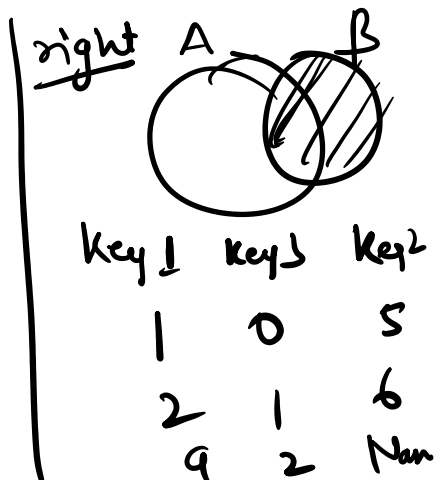 right A B
Key1 Key3 Key2
1 0 5
2 1 6
9 2 Nan